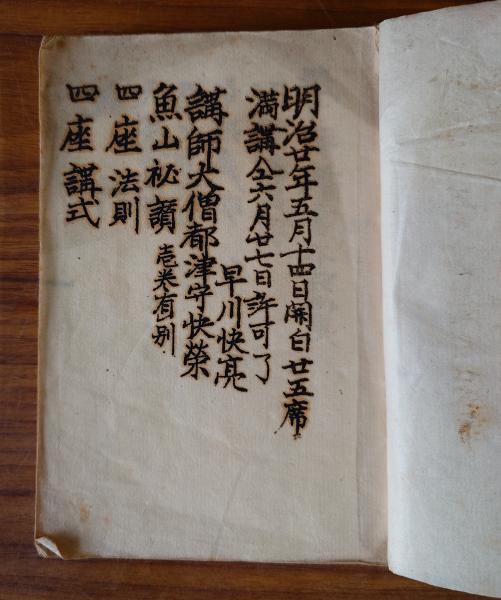 明治廿年五月十四日開白廿五席
満講仝六月廿七日許可了
早川快亮
講師大僧都津守快榮
魚山秘讃壱巻有別
四座法則
四座講式